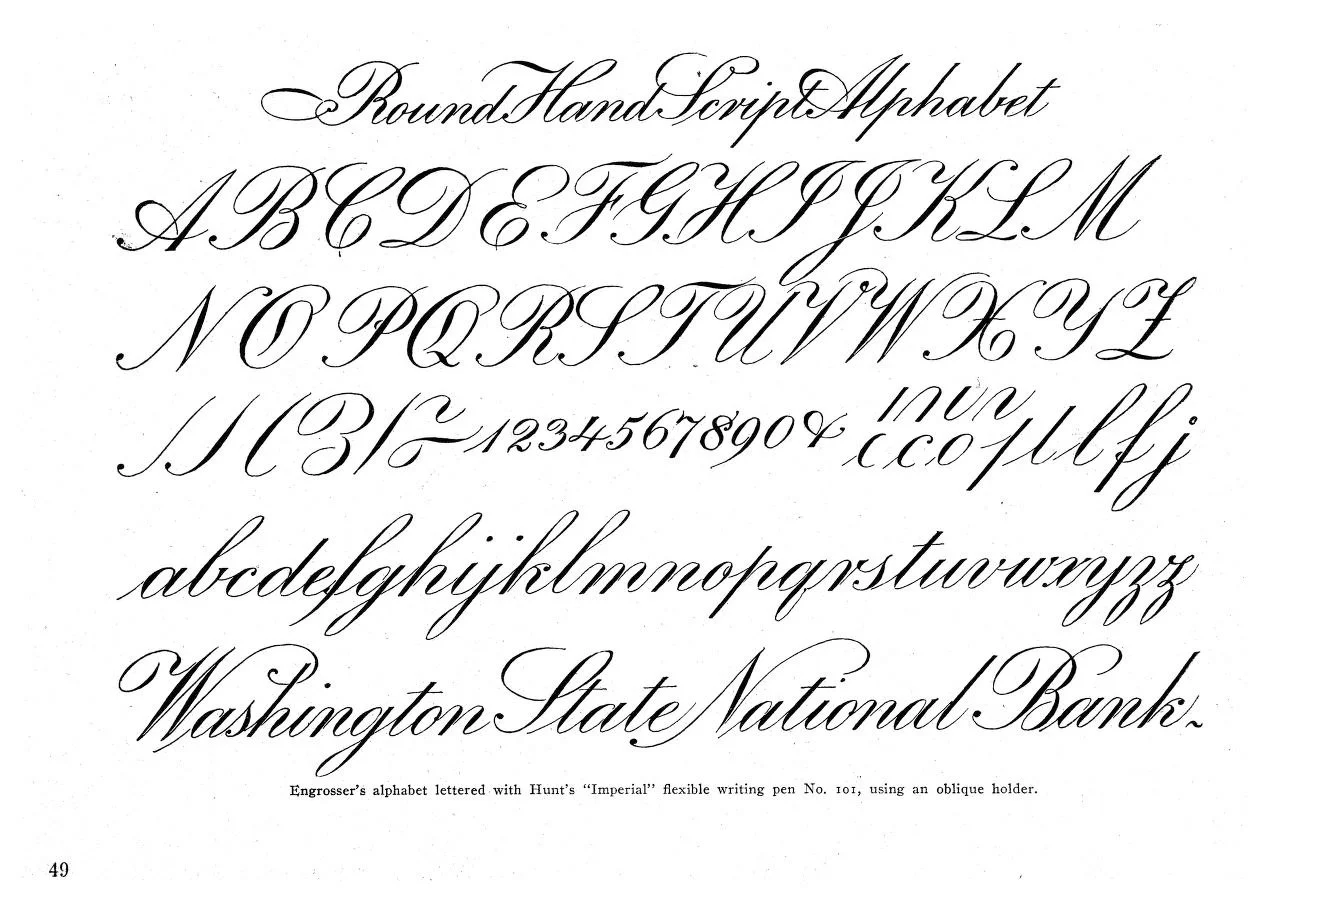 Round Hand Script Alphabet
A B C D E F G H I J K L M
N O P Q R S T U V W X Y Z
1234567890 &
c c o l l f j
abcdefghijklmnopqrstuvwxyzz
Washington State National Bank
Engrosser's alphabet lettered with Hunt's "Imperial" flexible writing pen No. 101, using an oblique holder.
49